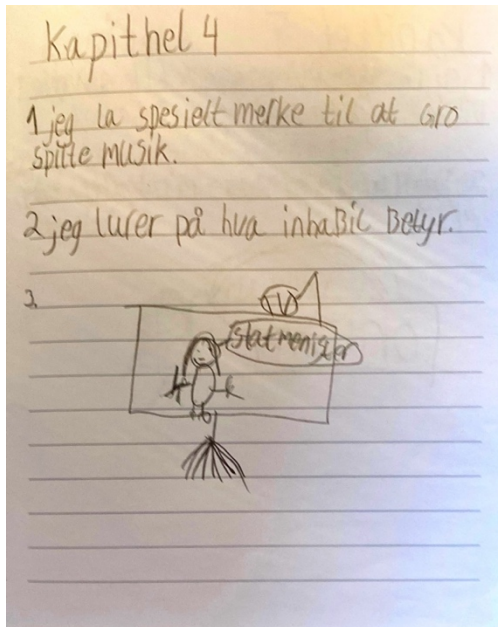 Kapithel 4
1 jeg la spesielt merke til at Gro
spille musik.
2 jeg lurer på hva inhaBil Betyr.
3.
TV
statmenister